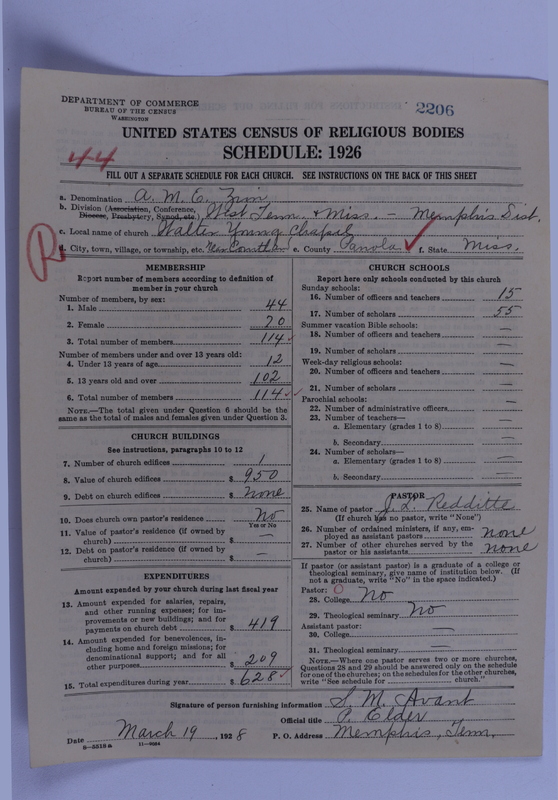 DEPARTMENT OF COMMERCE
BUREAU OF THE CENSUS
WASHINGTON
2206
UNITED STATES CENSUS OF RELIGIOUS BODIES
SCHEDULE: 1926
44
FILL OUT A SEPARATE SCHEDULE FOR EACH CHURCH. SEE INSTRUCTIONS ON THE BACK OF THIS SHEET
a. Denomination A. M. E. Zion
b. Division (Association, Conference, Diocese, Presbytery, Synod, etc.) West Tenn. & Miss. - Memphis Dist.
c. Local name of church Walter Young Chapel
d. City, town, village, or township, etc. Near Courtland e. County Panola f. State Miss.
R
MEMBERSHIP
Report number of members according to definition of
member in your church
Number of members, by sex:
1. Male 44
2. Female 70
3. Total number of members 114
Number of members under and over 13 years old:
4. Under 13 years of age 12
5. 13 years old and over 102
6. Total number of members 114
NOTE.—The total given under Question 6 should be the
same as the total of males and females given under Question 3.
CHURCH BUILDINGS
See instructions, paragraphs 10 to 12
7. Number of church edifices 1
8. Value of church edifices $ 950
9. Debt on church edifices $ none
10. Does church own pastor's residence No
Yes or No
11. Value of pastor's residence (if owned by
church) $ —
12. Debt on pastor's residence (if owned by
church) $ —
EXPENDITURES
Amount expended by your church during last fiscal year
13. Amount expended for salaries, repairs,
and other running expenses; for im-
provements or new buildings; and for
payments on church debt $ 419
14. Amount expended for benevolences, in-
cluding home and foreign missions; for
denominational support; and for all
other purposes $ 209
15. Total expenditures during year $ 628
CHURCH SCHOOLS
Report here only schools conducted by this church
Sunday schools:
16. Number of officers and teachers 15
17. Number of scholars 55
Summer vacation Bible schools:
18. Number of officers and teachers —
19. Number of scholars —
Week-day religious schools:
20. Number of officers and teachers —
21. Number of scholars —
Parochial schools:
22. Number of administrative officers —
23. Number of teachers—
a. Elementary (grades 1 to 8) —
b. Secondary —
24. Number of scholars—
a. Elementary (grades 1 to 8) —
b. Secondary —
PASTOR
25. Name of pastor J. L. Redditte
(If church has no pastor, write "None")
26. Number of ordained ministers, if any, em-
ployed as assistant pastors none
27. Number of other churches served by the
pastor or his assistants none
If pastor (or assistant pastor) is a graduate of a college or
theological seminary, give name of institution below. (If
not a graduate, write "No" in the space indicated.)
Pastor: O
28. College No
29. Theological seminary No
Assistant pastor:
30. College —
31. Theological seminary —
NOTE.—Where one pastor serves two or more churches,
Questions 28 and 29 should be answered only on the schedule
for one of the churches; on the schedules for the other churches,
write "See schedule for church."
Signature of person furnishing information S. M. Avant
Official title P. Elder
Date March 19, 1928 P. O. Address Memphis, Tenn.
8—5518 a 11—9624